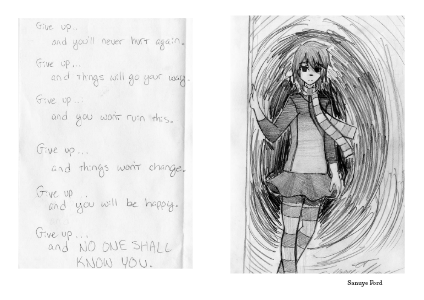 Give up..
and you'll never hurt again.
Give up...
and things will go your way.
Give up...
and you won't ruin
Give up...
and things won't change.
Give up
and you will be happy.
Give up...
and NO ONE SHALL
KNOW YOU.
Sanuye Ford